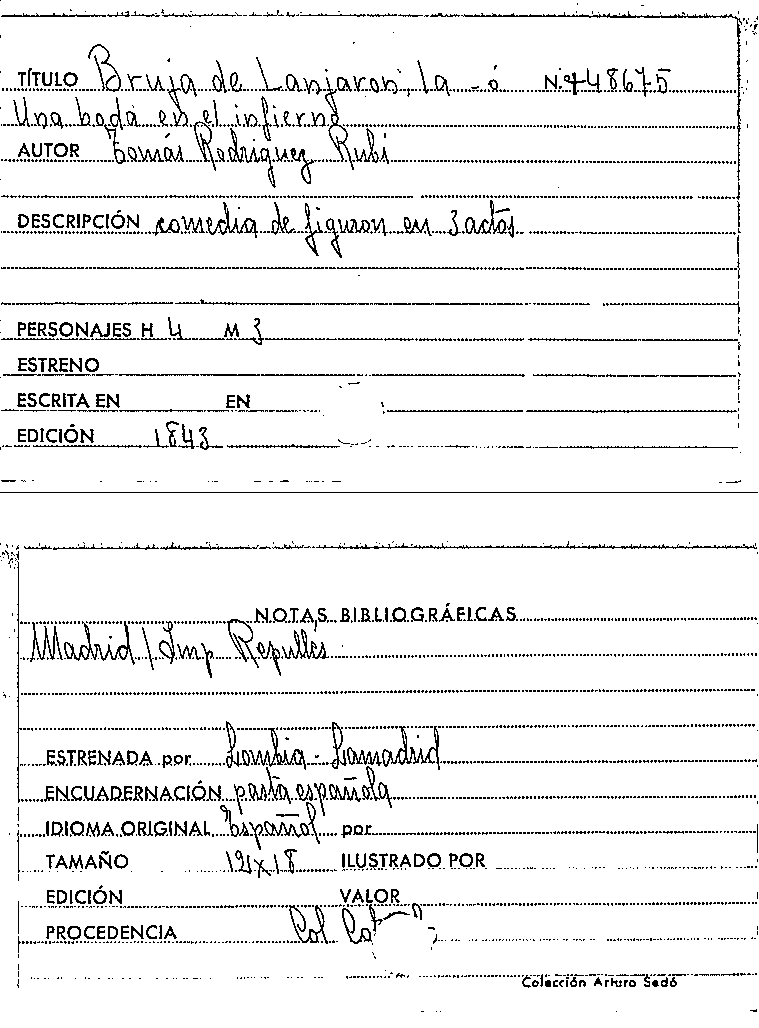 TÍTULO Bruja de Lanjaron, la - ó Nº 48675
Una boda en el infierno
AUTOR Tomás Rodriguez Rubi
DESCRIPCIÓN comedia de figuron en 3 actos
PERSONAJES H 4 M 3
ESTRENO
ESCRITA EN EN
EDICIÓN 1843
NOTAS BIBLIOGRÁFICAS
Madrid / Imp Repullés
ESTRENADA por Lombia - Lamadrid
ENCUADERNACIÓN pasta española
IDIOMA ORIGINAL Español por
TAMAÑO ILUSTRADO POR
EDICIÓN VALOR
PROCEDENCIA Col
Colección Arturo Sedó